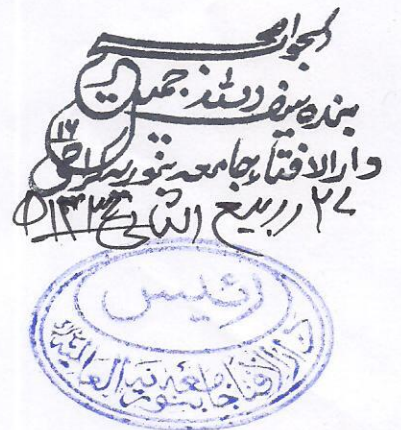 الجواب صحیح
بندہ سیف اللہ جمیل
دارالافتاء جامعہ بنوریہ کراچی ۱۶
۲۷ ربیع الثانی ۱۴۳۳ھ
رئیس
دارالافتاء جامعہ بنوریہ العالمیہ